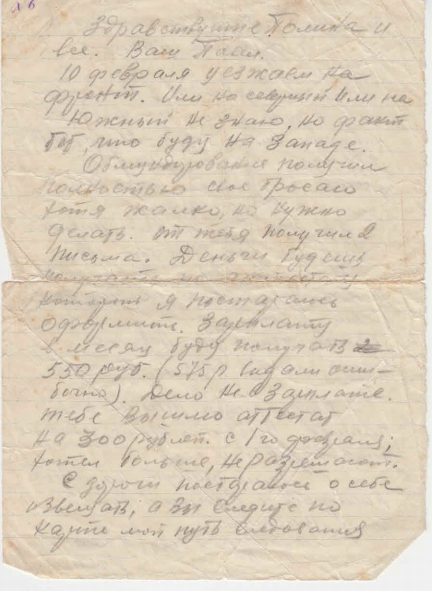 Здравствуйте Полина и
все. Ваш Павел.
10 февраля уезжаем на
фронт. Или на северный или на
Южный не знаю, но факт
тот, что буду на Западе.
Обмундирование получил
полностью свое бросаю
хотя жалко, но нужно
делать. от тебя получил 2
письма. Деньги будешь
получать по аттестату
который я постараюсь
оформить. Зарплату
в месяц буду получать
550 руб. (575 р
бочно). Дело не в зарплате.
тебе вышлю аттестат
на 300 рублей. с 1го февраля;
хотел больше, не разрешают.
С дороги постараюсь о себе
извещать, а Вы следите по
карте мой путь следования